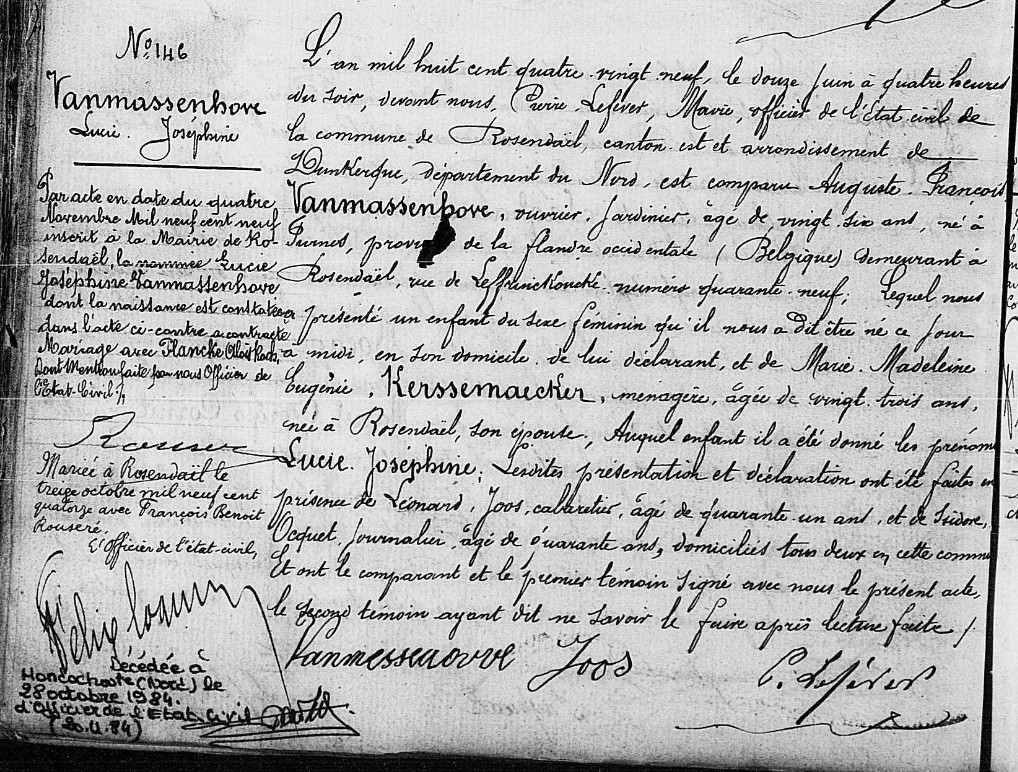 N° 146
Vanmassenhove
Lucie. Joséphine
Par acte en date du quatre
Novembre Mil neuf cent neuf
inscrit à la Mairie de Ro-
sendaël, la nommée Lucie
Joséphine Vanmassenhove
dont la naissance est constatée
dans l'acte ci-contre a contracté
Mariage avec Plancke
Dont Mention faite par nous Officier de
l'Etat-Civil ./.
Mariée à Rosendaël le
treize octobre mil neuf cent
quatorze avec François Benoit
Rouseré.
L'Officier de l'état-civil,
Décédée à
(Nord) le
28 octobre 1984.
d'Officier de l'Etat Civil
L'an mil huit cent quatre-vingt neuf, le douze Juin à quatre heures
du soir, devant nous, Pierre Lefever, Maire, officier de l'Etat-civil de
la commune de Rosendaël, canton est et arrondissement de
Dunkerque, département du Nord, est comparu Auguste François
Vanmassenhove, ouvrier jardinier, âgé de vingt six ans, né à
Furnes, de la flandre occidentale (Belgique) demeurant à
Rosendaël, rue de Leffrinckoucke numéro quarante-neuf; Lequel nous
a présenté un enfant du sexe féminin qu'il nous a dit être né ce jour
à midi, en son domicile de lui déclarant, et de Marie Madeleine
Eugénie, Kerssemaecker, ménagère, âgée de vingt trois ans,
née à Rosendaël, son épouse; Auquel enfant il a été donné les prénoms
Lucie Joséphine; Lesdites présentation et déclaration ont été faites en
présence de Léonard, Joos, cabaretier, âgé de quarante un ans, et de Isidore,
Ocquet, Journalier, âgé de quarante ans, domiciliés tous deux en cette commune
Et ont le comparant et le premier témoin signé avec nous le présent acte,
le second témoin ayant dit ne savoir le faire après lecture faite /.
Vanmessenovve Joos P. Lefever